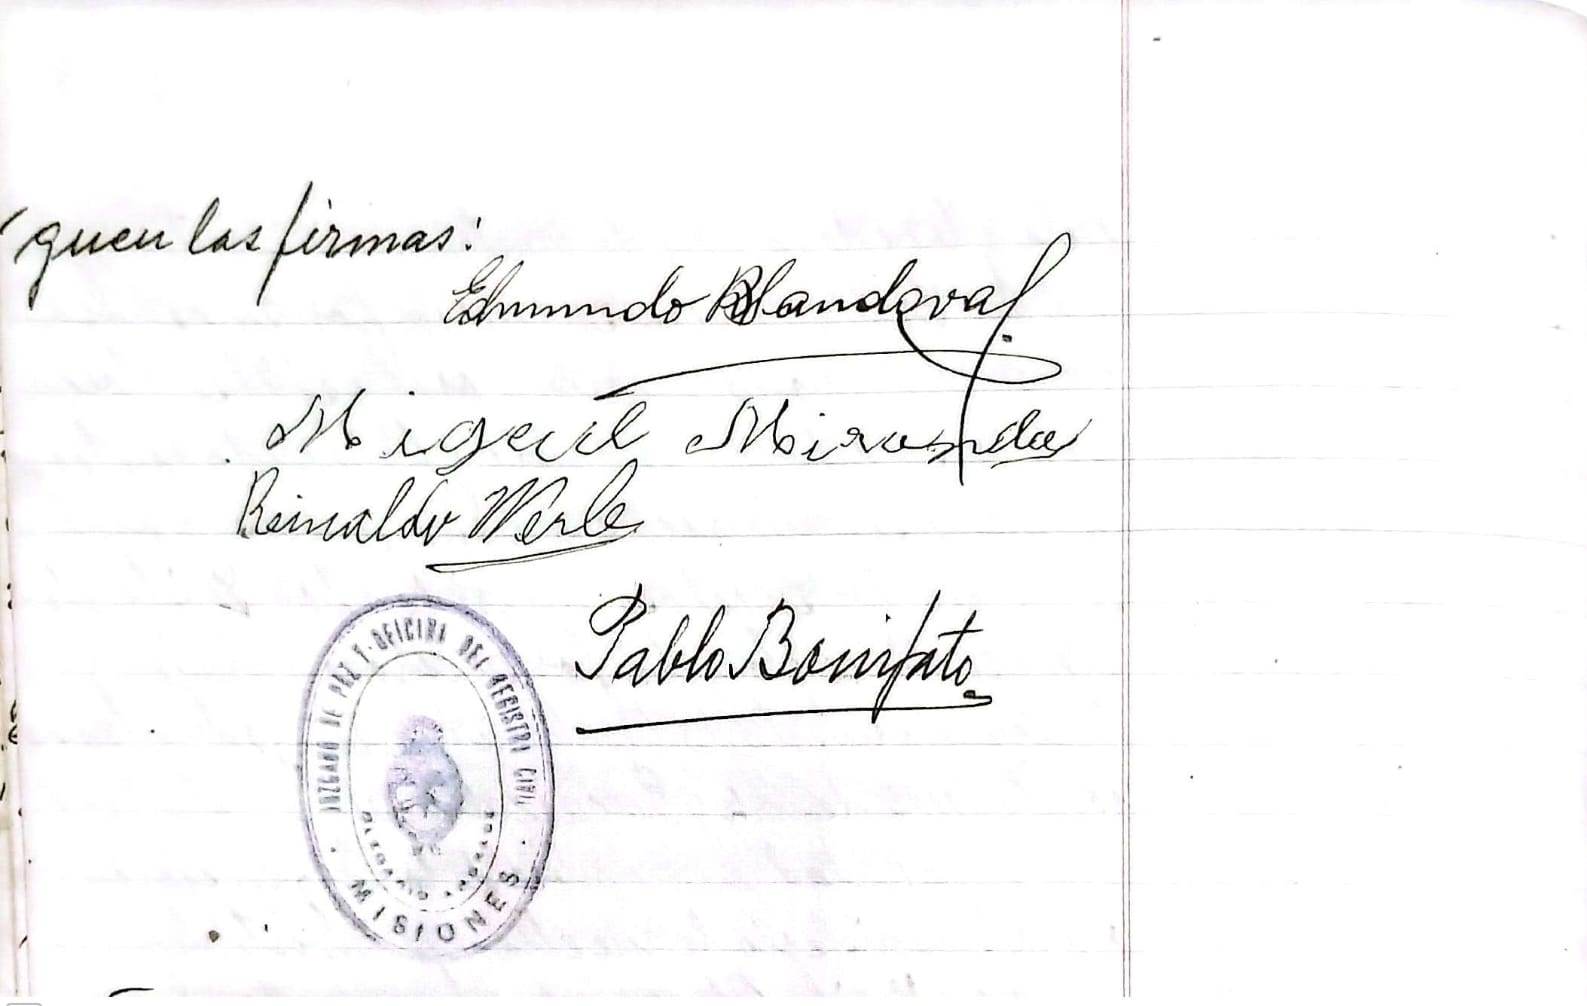 guen las firmas:
Edmundo R Sandoval
Miguel Miranda
Reinaldo Werle
Pablo Bonifato
JUZGADO DE PAZ Y OFICINA DEL REGISTRO CIVIL
MISIONES